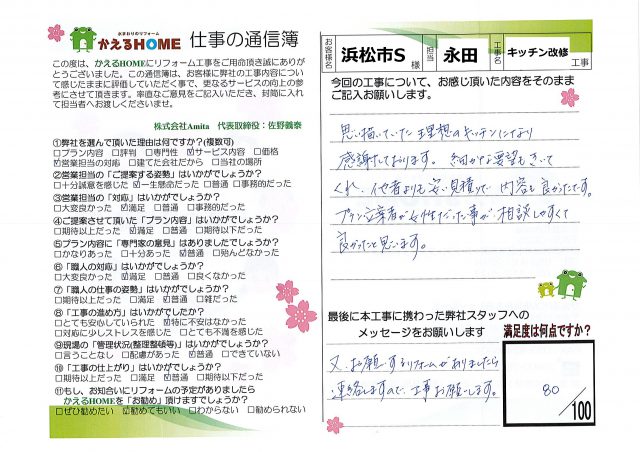 水まわりのリフォーム
かえるHOME 仕事の通信簿
この度は、かえるHOMEにリフォーム工事をご用命頂き誠にありが
とうございました。この通信簿は、お客様に弊社の工事内容につい
て感じたままに評価していただく事で、更なるサービスの向上の参
考にさせて頂きます。率直なご意見をご記入いただき、封筒に入れ
て担当者へお渡しくださいませ。
株式会社Amita 代表取締役:佐野義泰
①弊社を選んで頂いた理由は何ですか?(複数可)
□プラン内容 □評判 □専門性 ☑サービス内容 □価格
☑営業担当の対応 □建てた会社だから □当社の場所
②営業担当の「ご提案する姿勢」はいかがでしょうか?
□十分誠意を感じた ☑一生懸命だった □普通 □事務的だった
③営業担当の「対応」はいかがでしょうか?
□大変良かった ☑満足 □普通 □事務的だった
④ご提案させて頂いた「プラン内容」はいかがでしょうか?
□期待以上だった ☑満足 □普通 □期待以下だった
⑤プラン内容に「専門家の意見」はありましたでしょうか?
□かなりあった □十分あった ☑普通 □殆んどなかった
⑥「職人の対応」はいかがでしょうか?
□大変良かった ☑満足 □普通 □良くなかった
⑦「職人の仕事の姿勢」はいかがでしょうか?
□期待以上だった □満足 ☑普通 □雑だった
⑧「工事の進め方」はいかがでしたか?
□とても安心していられた ☑特に不安はなかった
□対応に少しストレスを感じた □とても不満を感じた
⑨現場の「管理状況(整理整頓等)」はいかがでしょうか?
□言うことなし □配慮があった ☑普通 □できていない
⑩「工事の仕上がり」はいかがでしょうか?
□期待以上だった □満足 ☑普通 □期待以下だった
⑪もし、お知合いにリフォームの予定がありましたら
かえるHOMEを「お勧め」頂けますでしょうか?
□ぜひ勧めたい ☑勧めてもいい □わからない □勧められない
お客様名 浜松市S 様 担当 永田 工事名 キッチン改修 工事
今回の工事について、お感じ頂いた内容をそのまま
ご記入お願いします。
思い描いていた理想のキッチンになり
感謝しております。細かな要望もきいて
くれ、他者よりも安い見積りで内容も良かったです。
プラン立案者が女性だった事が相談しやすくて
良かったと思います。
最後に本工事に携わった弊社スタッフへの
メッセージをお願いします
満足度は何点ですか?
又、お願いするリフォームがありましたら
連絡しますので、工事お願いします。
80
/100